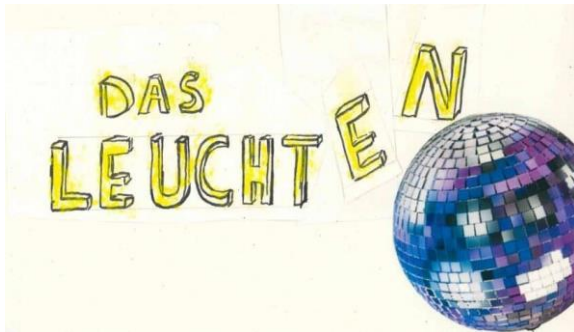 DAS
LEUCHTEN